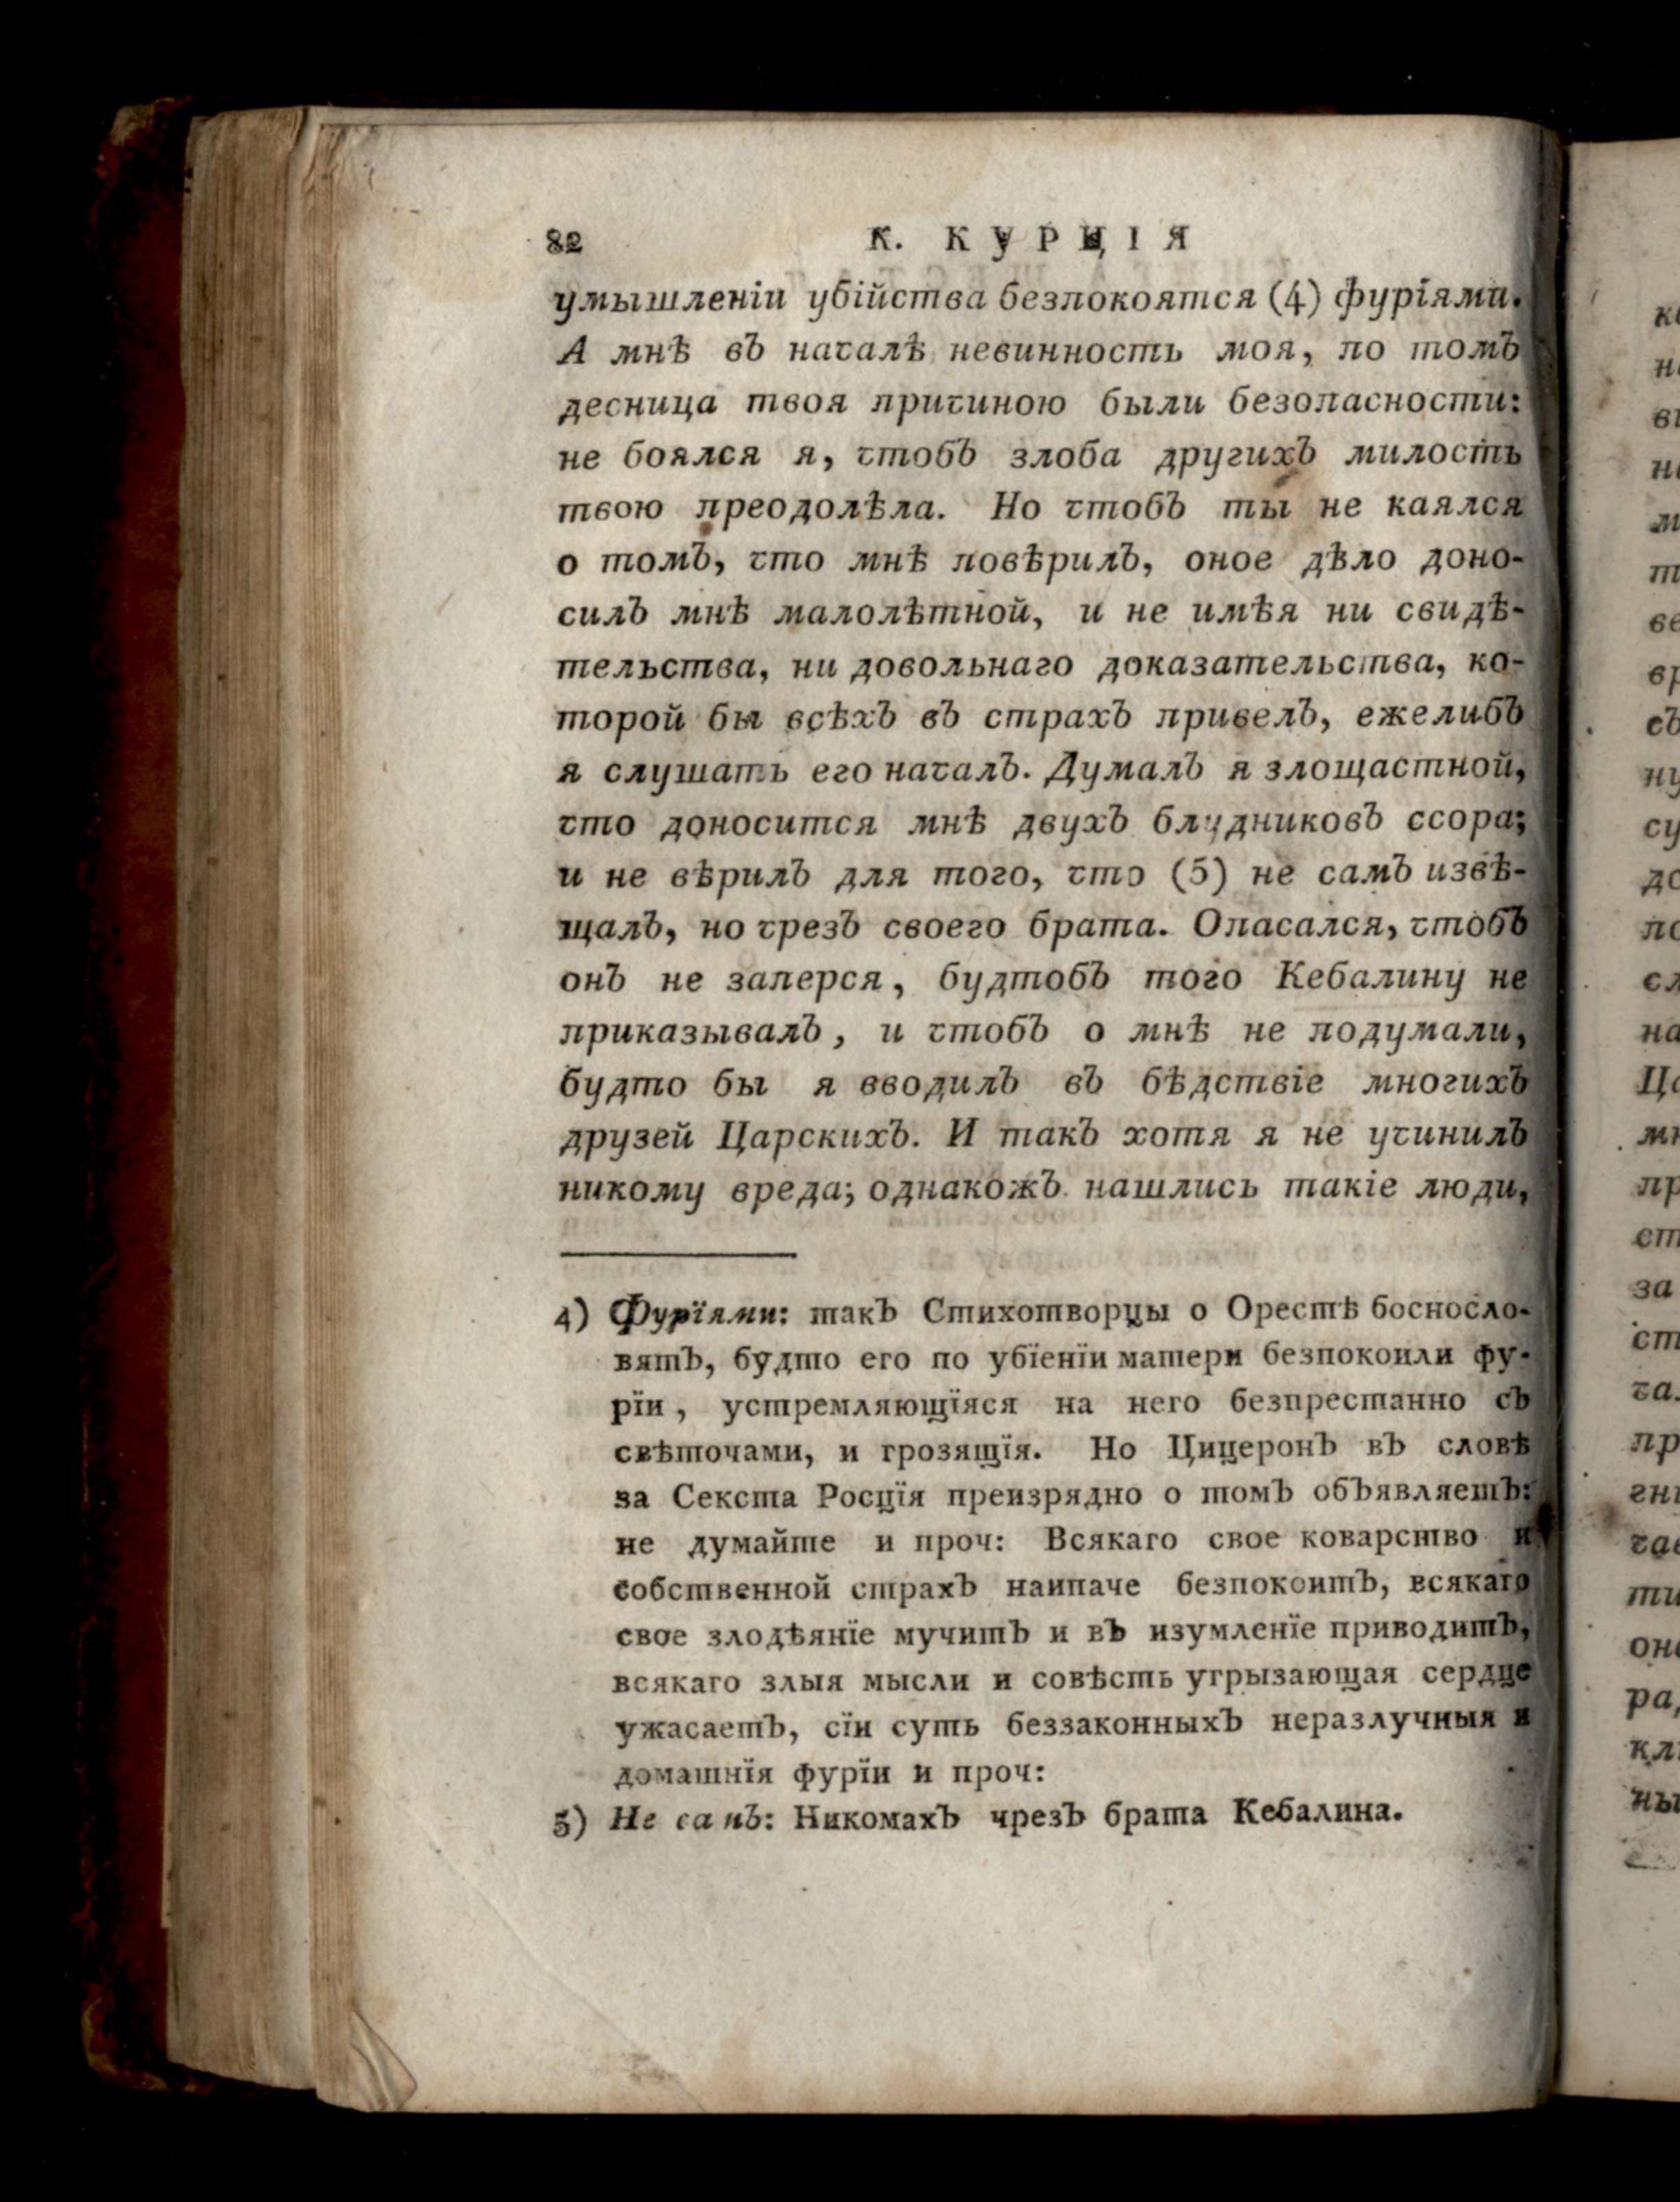 82 К. КУРЦІЯ
умышленіи убійства безпокоятся (4) фуріями.
А мнѣ въ началѣ невинность моя, по томъ
десница твоя причиною были безопасности:
не боялся я, чтобъ злоба другихъ милость
твою преодолѣла. Но чтобъ ты не каялся
о томъ, что мнѣ повѣрилъ, оное дѣло доно-
силъ мнѣ малолѣтной, и не имѣя ни свидѣ-
тельства, ни довольнаго доказательства, ко-
торой бы всѣхъ въ страхъ привелъ, ежелибъ
я слушать его началъ. Думалъ я злощастной,
что доносится мнѣ двухъ блудниковъ ссора;
и не вѣрилъ для того, что (5) не самъ извѣ-
щалъ, но чрезъ своего брата. Опасался, чтобъ
онъ не заперся, будтобъ того Кебалину не
приказывалъ, и чтобъ о мнѣ не подумали,
будто бы я вводилъ въ бѣдствіе многихъ
друзей Царскихъ. И такъ хотя я не учинилъ
никому вреда; однакожъ нашлись такіе люди,
4) Фурїями: такъ Стихотворцы о Орестѣ босносло-
вятъ, будто его по убїенїи матери безпокоили фу-
рїи, устремляющїяся на него безпрестанно съ
свѣточами, и грозящїя. Но Цицеронъ въ словѣ
за Секста Росцїя преизрядно о томъ объявляетъ:
не думайте и проч: Всякаго свое коварство и
собственной страхъ наипаче безпокоитъ, всякаго
свое злодѣянїе мучитъ и въ изумленїе приводитъ,
всякаго злыя мысли и совѣсть угрызающая сердце
ужасаетъ, сїи суть беззаконныхъ неразлучныя и
домашнїя фурїи и проч:
5) Не самъ: Никомахъ чрезъ брата Кебалина.